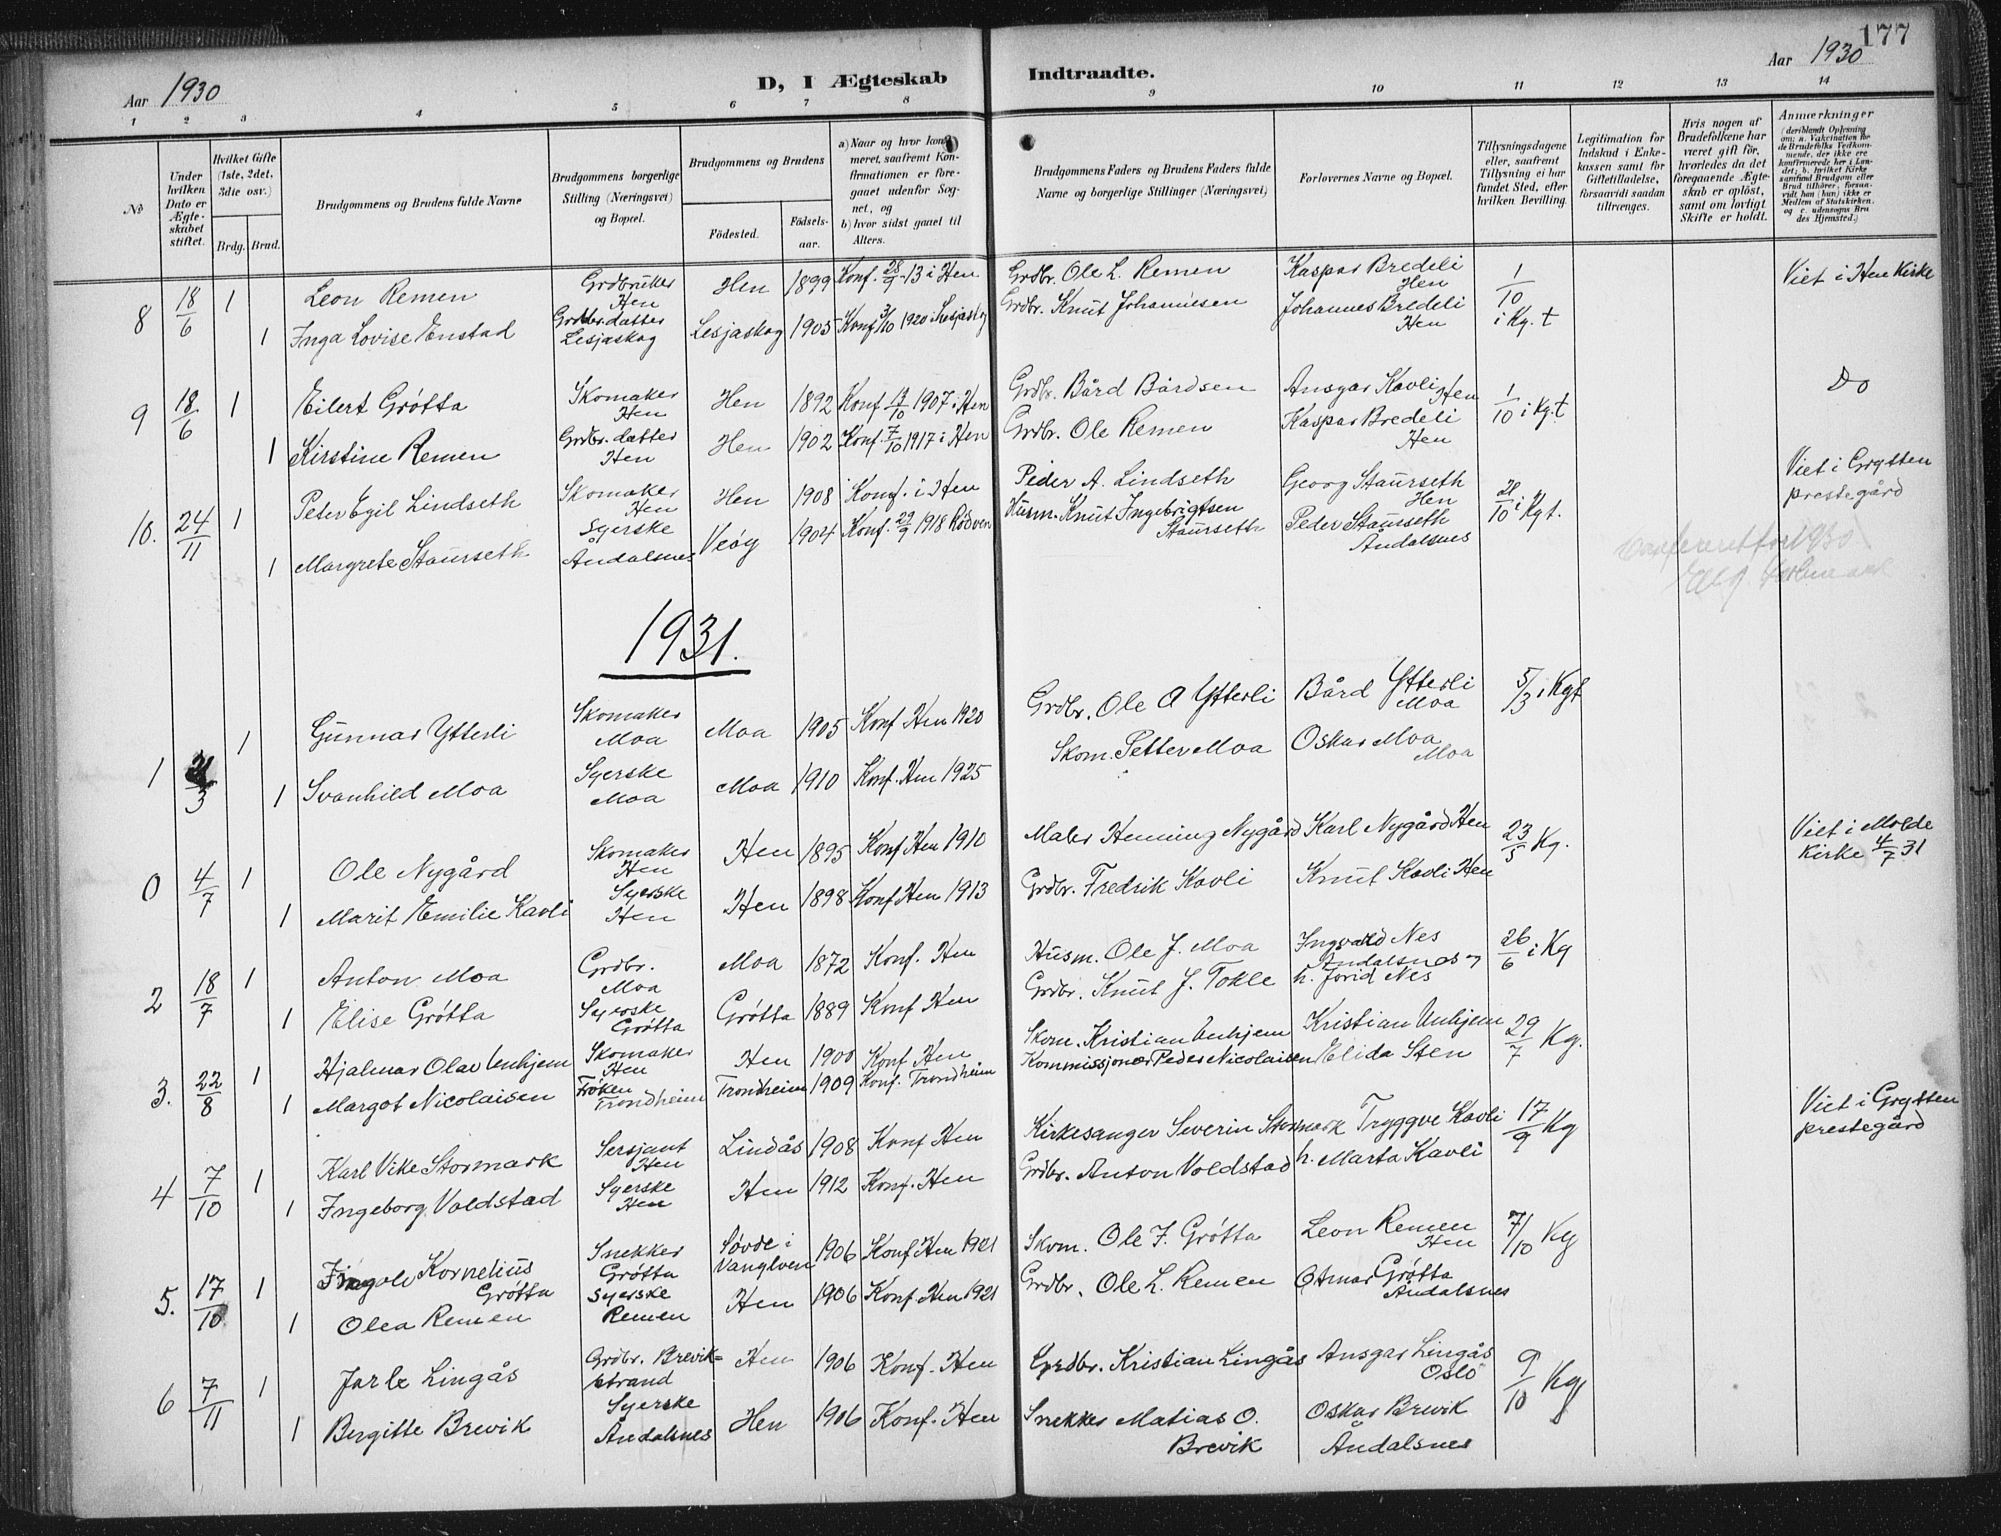 177
Aar 1930
D, I Ægteskab Indtraadte.
Aar 1930
1 2 3 4 5 6 7 8 9 10 11 12 13 14
№
Under hvilken Dato er Ægteskabet stiftet.
Hvilket Gifte (1ste, 2det, 3die osv.)
Brdg. Brud.
Brudgommens og Brudens fulde Navne
Brudgommens borgerlige Stilling (Næringsvei) og Bopæl.
Brudgommens og Brudens
Fødested. Fødselsaar.
Brudgommens Faders og Brudens Faders fulde Navne og borgerlige Stillinger (Næringsvei)
Forlovernes Navne og Bopæl.
Tillysningsdagene eller, saafremt Tillysning ei har fundet Sted, efter hvilken Bevilling.
Legitimation for Indskud i Enkekassen samt for Giftetilladelse, forsaavidt saadan tiltrænges.
Hvis nogen af Brudefolkene har været gift før, hvorledes da det foregaaende Ægteskab er opløst, samt om lovligt Skifte er holdt.
Anmærkninger
8 18/6 1 Leon Remen Grdbruker Hen Hen 1899 Konf. 28/9-13 i Hen Grdbr. Ole L. Remen Kaspar Bredeli Hen 1/10 i Kg.t Viet i Hen Kirke
1 Inga Lovise Enstad Grdbr.datter Lesjaskog Lesjaskog 1905 Konf 3/10 1920 Lesjaskog Grdbr. Knut Johannesen Johannes Bredeli Hen
9 18/6 1 Eilert Grøtta Skomaker Hen Hen 1892 Konf. 13/10 1907 i Hen Grdbr. Bård Bårdsen Ansgar Kavli Hen 1/10 i Kg.t Do
1 Kirstine Remen Grdbr.datter Hen Hen 1902 Konf. 7/10 1917 i Hen Grdbr. Ole Remen Kaspar Bredeli Hen
10. 24/11 1 Peter Egil Lindseth Skomaker Hen Hen 1908 Konf. i Hen Peder A. Lindseth Georg Staurseth Hen 21/10 i Kgt. Viet i Grytten prestegård
1 Margrete Staurseth Syerske Åndalsnes Veøy 1904 Konf. 29/9 1918 Rødven Husm. Knut Ingebrigtsen Staurseth Peder Staurseth Åndalsnes
1931.
1 21/3 1 Gunnar Ytterli Skomaker Moa Moa 1905 Konf Hen 1920 Grdbr. Ole A Ytterli Bård Ytterli Moa 5/3 i Kgt
1 Svanhild Moa Syerske Moa Moa 1910 Konf. Hen 1925 Skom. Petter Moa Oskar Moa Moa
0 4/7 1 Ole Nygård Skomaker Hen Hen 1895 Konf Hen 1910 Maler Henning Nygård Karl Nygård Hen 23/5 Kg. Viet i Molde Kirke 4/7 31
1 Marit Emilie Kavli Syerske Hen Hen 1898 Konf Hen 1913 Grdbr. Fredrik Kavli Knut Kavli Hen
2 18/7 1 Anton Moa Grdbr. Moa Moa 1872 Konf. Hen Husm. Ole J. Moa Ingvald Nes Åndalsnes 26/6 i Kg
1 Elise Grøtta Syerske Grøtta Grøtta 1889 Konf Hen Grdbr. Knut J. Tokle h. Jorid Nes
3. 22/8 1 Hjalmar Olav Unhjem Skomaker Hen Hen 1900 Konf. Hen Skom. Kristian Unhjem Kristian Unhjem 29/7 Kg.
1 Margot Nicolaisen Frøken Trondheim Trondheim 1909 Konf. Trondheim Kommissjonær Peder Nicolaisen Elida Sten
4 7/10 1 Karl Vike Stormark Sersjant Hen Lindås 1908 Konf Hen Kirkesanger Severin Stormark Tryggve Kavli 17/9 Kg Viet i Grytten prestegård
1 Ingeborg Voldstad Syerske Hen Hen 1912 Konf. Hen Grdbr. Anton Voldstad h. Marta Kavli
5. 17/10 1 Kornelius Grøtta Snekker Grøtta Søvde i Vanylven 1906 Konf Hen 1921 Skom. Ole J. Grøtta Leon Remen Hen 7/10 Kg
1 Olea Remen Syerske Remen Hen 1906 Konf Hen 1921 Grdbr. Ole L. Remen Otmar Grøtta Åndalsnes
6 7/11 1 Jarle Lingås Grdbr. Brevikstrand Hen 1906 Konf. Hen Grdbr. Kristian Lingås Ansgar Lingås Oslo 9/10 Kg
1 Bergitte Brevik Syerske Åndalsnes Hen 1906 Konf. Hen Snekker Matias O. Brevik Oskar Brevik Åndalsnes